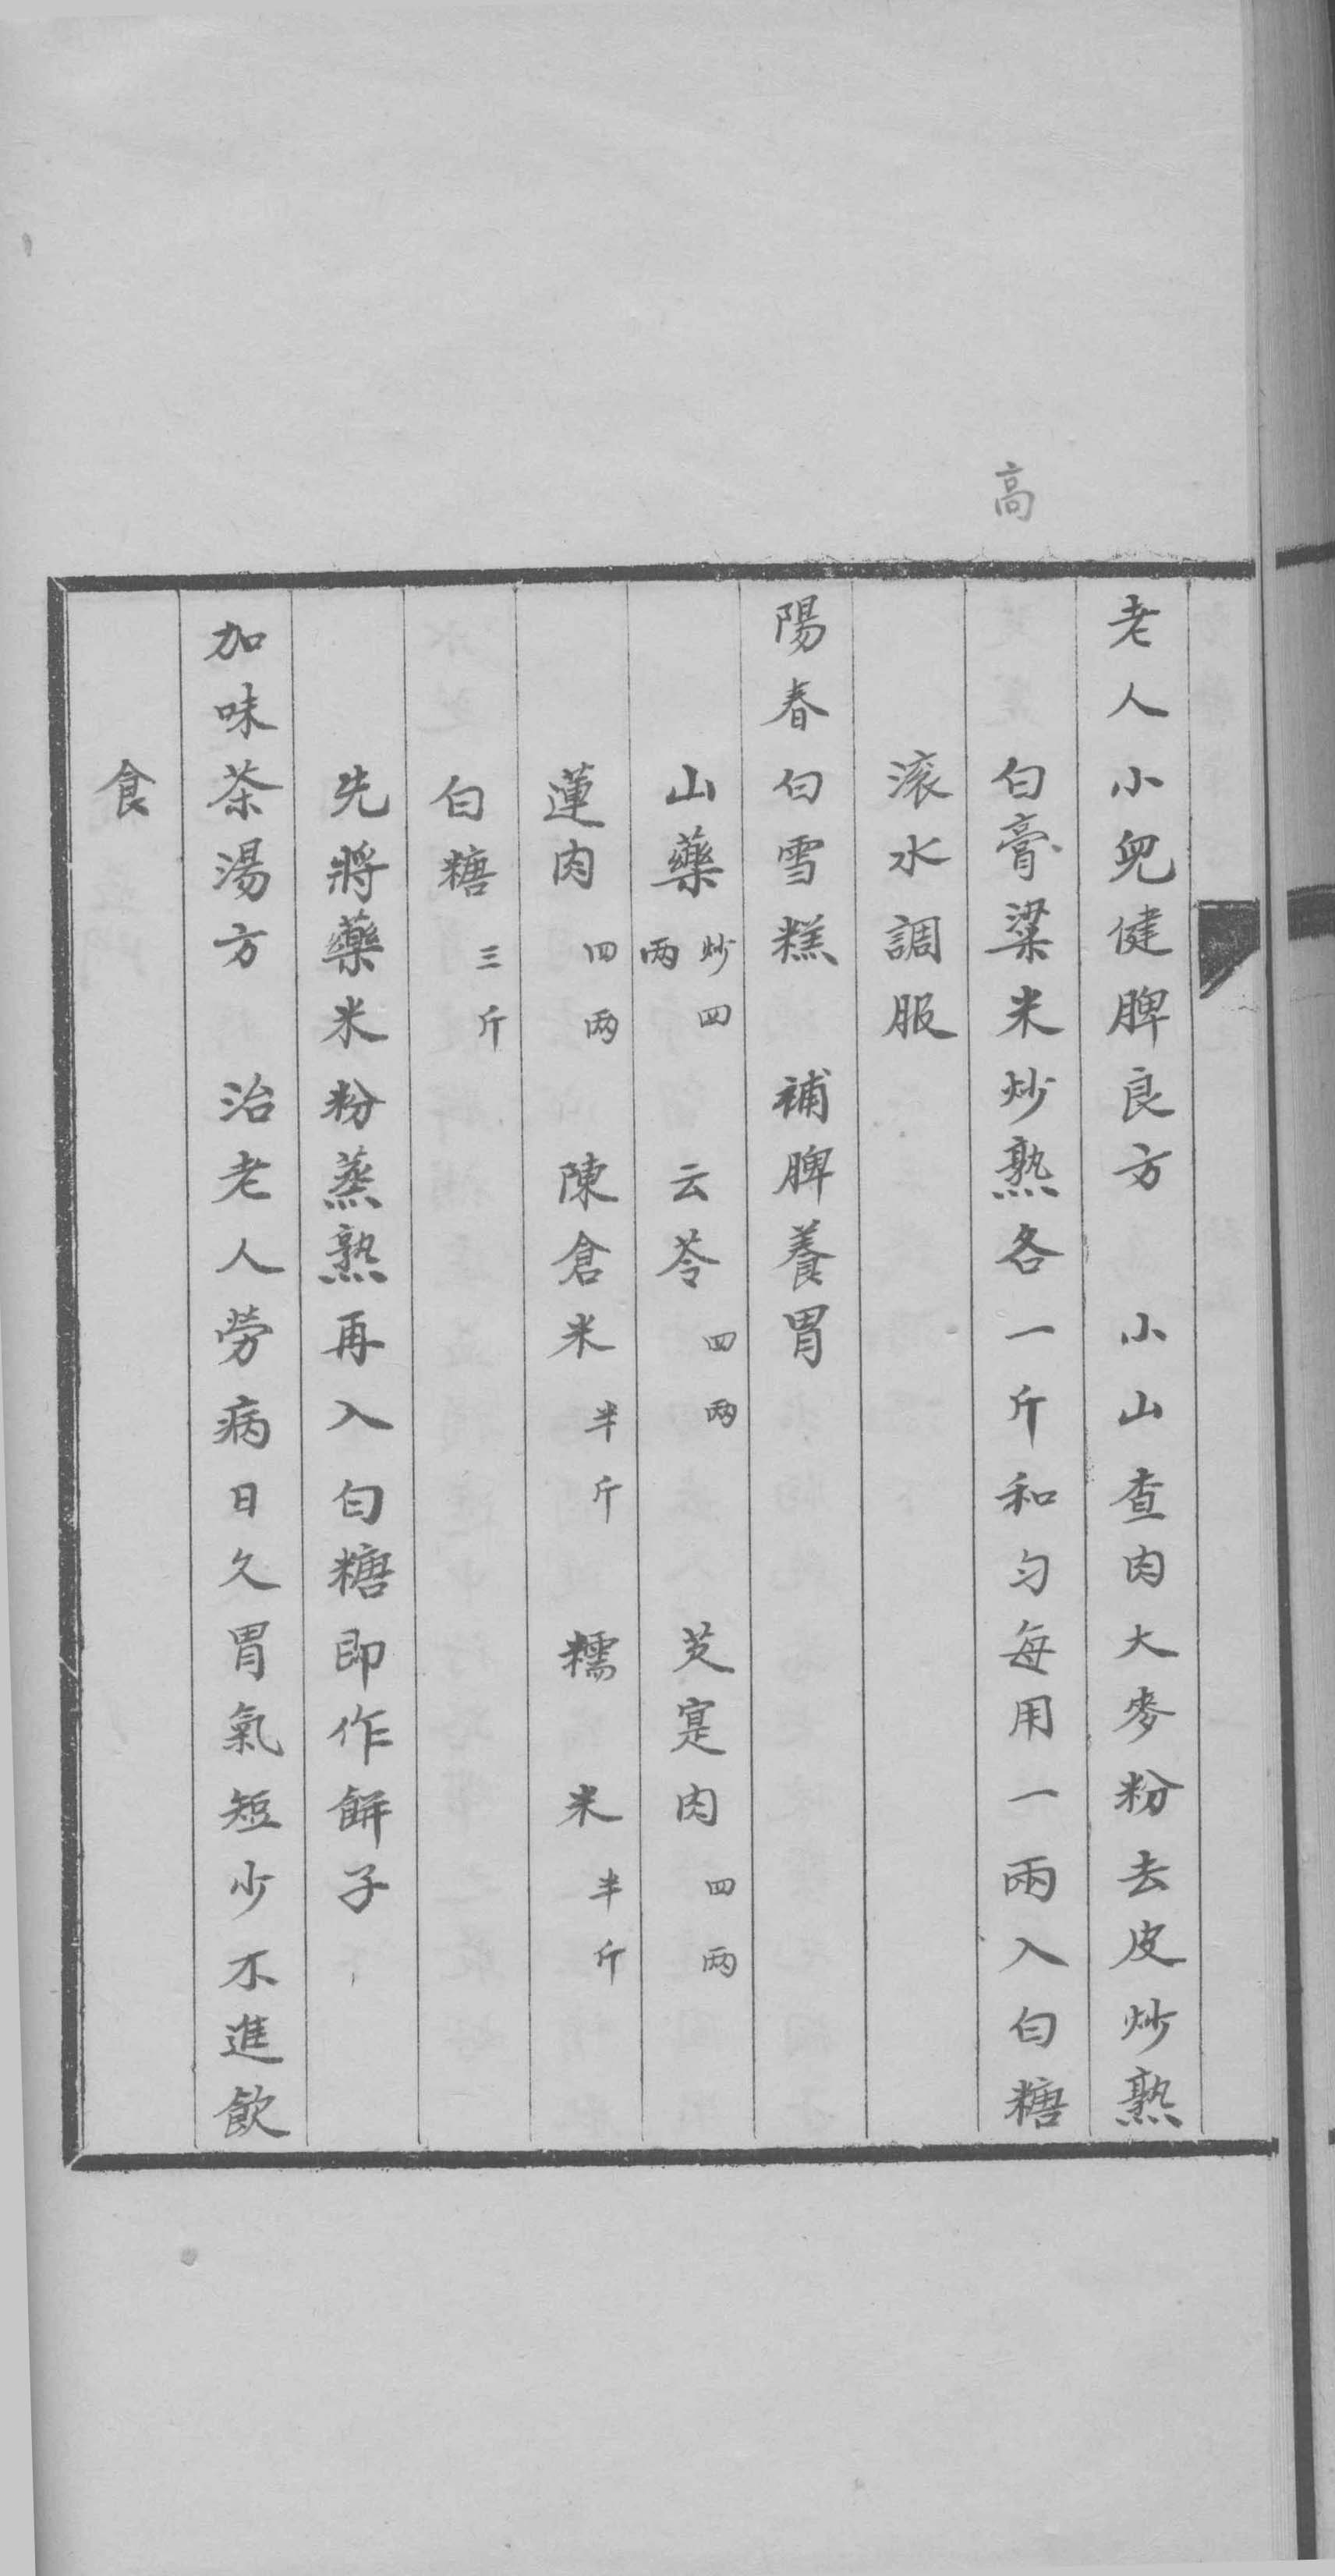 高
老人小兒健脾良方　小山查肉大麥粉去皮炒熟
白膏粱米炒熟各一斤和匀每用一兩入白糖
滚水調服
陽春白雪糕　補脾養胃
山藥炒四两　云苓四两　芡寔肉四两
蓮肉四两　陳倉米半斤　糯米半斤
白糖三斤
先將藥米粉蒸熟再入白糖即作餅子
加味茶湯方　治老人勞病日久胃氣短少不進飲
食